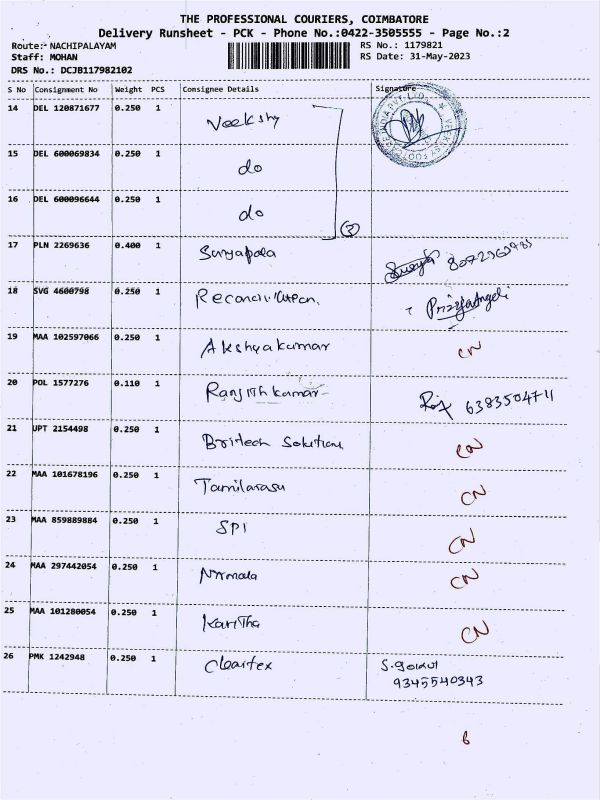 THE PROFESSIONAL COURIERS, COIMBATORE
Delivery Runsheet - PCK - Phone No.:0422-3505555 - Page No.:2
Route:- NACHIPALAYAM RS No.: 1179821
Staff: MOHAN RS Date: 31-May-2023
DRS No.: DCJB117982102
S No Consignment No Weight PCS Consignee Details Signature
14 DEL 120871677 0.250 1 Veekshy
15 DEL 600069834 0.250 1 do
16 DEL 600096644 0.250 1 do
3
17 PLN 2269636 0.400 1
18 SVG 4600798 0.250 1
19 MAA 102597066 0.250 1 Akshyakumar CN
20 POL 1577276 0.110 1 Ranjithkumar 6383504711
21 UPT 2154498 0.250 1 Britech Solution CN
22 MAA 101678196 0.250 1 Tamilarasu CN
23 MAA 859889884 0.250 1 SPI CN
24 MAA 297442054 0.250 1 Nirmala CN
25 MAA 101280054 0.250 1 Karitha CN
26 PMK 1242948 0.250 1 Cleartex S. Gokul
9345540343
6